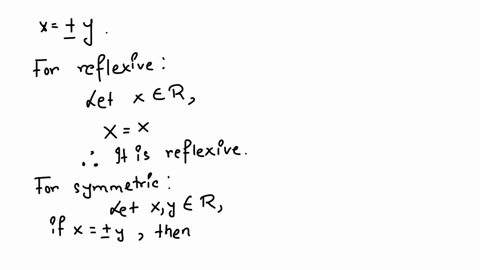 x = ± y .
For reflexive :
Let x ∈ R,
x = x
∴ It is reflexive.
For symmetric :
Let x, y ∈ R,
if x = ± y , then